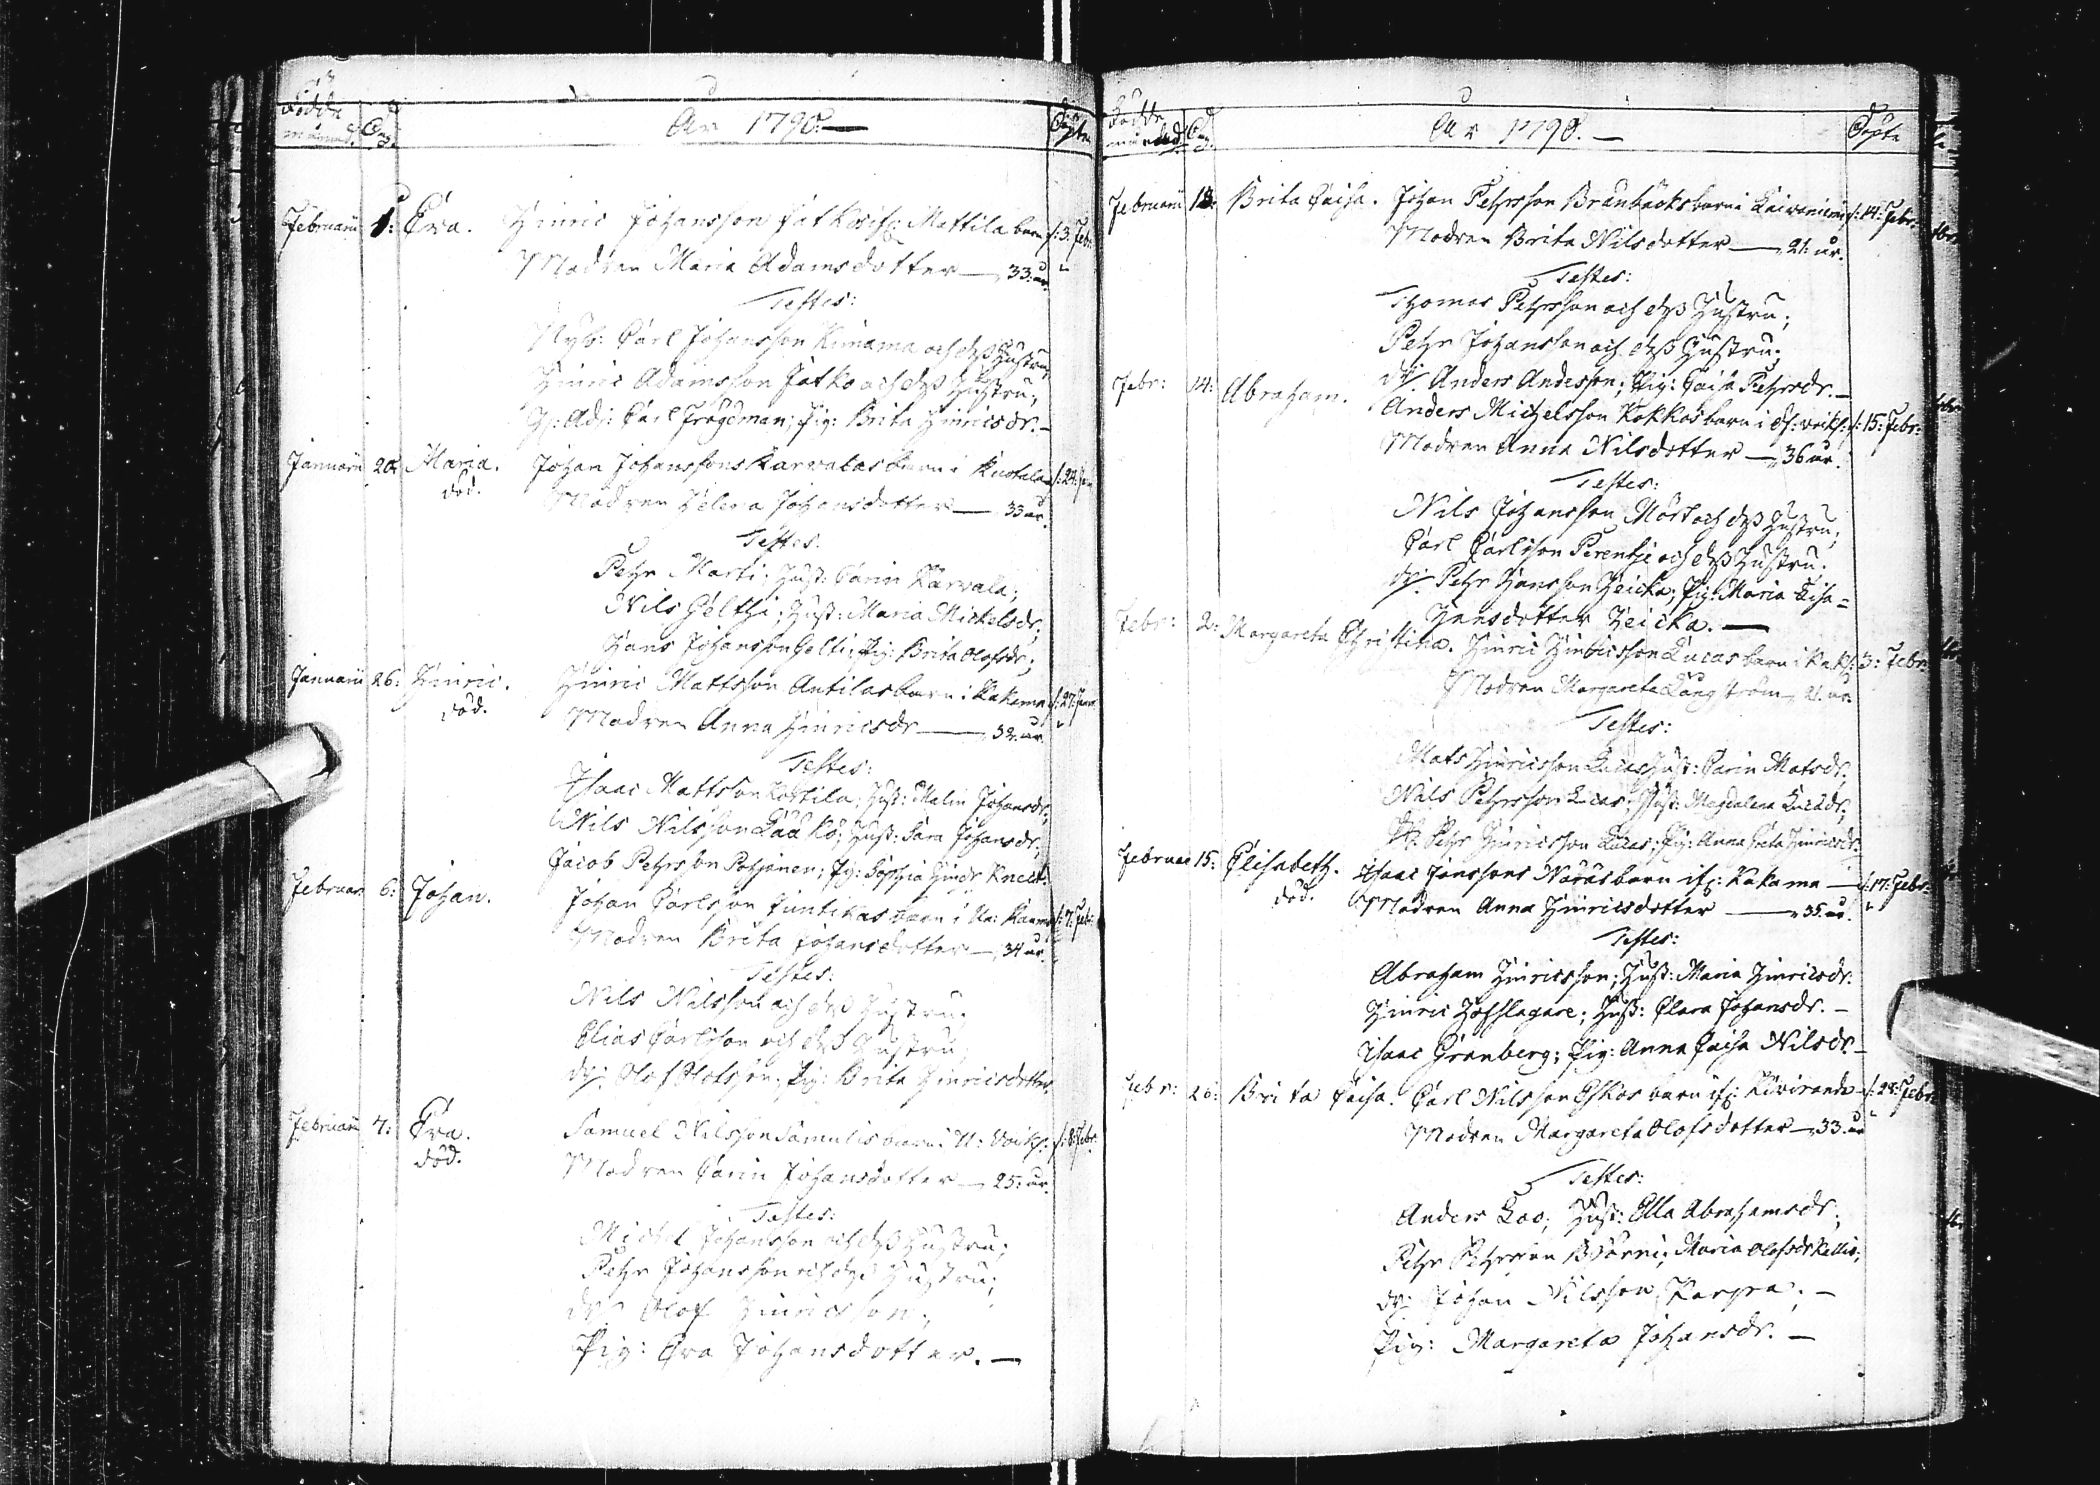 Födde
månad. Dag.
År 1790.—
Döpte
Februarii 1: Eva. Hinric Johansson Jatkos Mattila barn d: 3. Febr:
Modren Maria Adamsdotter — 33. år.
Testes:
Nyb: Carl Johansson Kimama och dess Hustru,
Hinric Adamsson Jatko och dess Hustru,
Carl Frögdman; Pig: Brita Hinricsdr.—
Januarii 20: Maria. Johan Johanssons Karvalas barn i d: 24: Jan
död. Modren Helena Johansdotter — 33 år.
Testes:
Pehr Marti; Hust: Carin Karvala;
Nils Gelthi; Hust: Maria Mickelsdr;
Hans Johansson Gelti; Pig: Brita Olofsdr;
Januarii 26: Hinric. Hinric Mattsson Antilas barn i Kakama d: 27: Janu
död. Modren Anna Hinricsdr — 32. år.
Testes:
Isaac Mattsson Kostila; Hust: Malin Johansdr;
Nils Nilsson Lääkö; Hust: Sara Johansdr;
Jacob Pehrsson Pohjanen; Pig: Sophia Hindr Knekt.
Februar 6: Johan. Johan Carlsson Juntikas barn i d: 7: Febr:
Modren Brita Johansdotter — 34 år.
Testes:
Nils Nilsson och dess Hustru;
Elias Carlsson och dess Hustru,
dr: Olof Olofsson; Pig: Brita Hinricsdotter.
Februarii 7: Eva. Samuel Nilsson Samulis barn i N: Voik: d: 8: Febr.
död. Modren Carin Johansdotter — 25: år.
Testes:
Michel Johansson och dess Hustru;
Pehr Johansson och dess Hustru;
dr: Olof Hinricsson;
Pig: Eva Johansdotter.—
Födde
månad. Dag.
År 1790.—
Döpte
Februarii 13: Brita Caisa. Johan Pehrsson Brännbäcks barn i Laivaniemi d: 14: Febr:
Modren Brita Nilsdotter — 21: år.
Testes:
Thomas Pehrsson och dess Hustru;
Pehr Johansson och dess Hustru;
dr: Anders Andersson; Pig: Caisa Pehrsdr.—
Febr: 14: Abraham. Anders Michelsson Kokkos barn i Öf: Voik: d: 15: Febr:
Modren Anna Nilsdotter — 36 år.
Testes:
Nils Johansson Mört och dess Hustru;
Carl Carlsson Perentie och dess Hustru.
dr: Pehr Hansson Heicka; Pig: Maria Lisa
Hansdotter Heicka.—
Febr: 2: Margareta Christina. Hinric Hinricsson Lucas barn i Kak: d: 3: Febr:
Modren Margareta Långström, 21. år.
Testes:
Mats Hinricsson Lucas Hust: Carin Matsdr;
Nils Pehrsson Lucas; Hust: Magdalena Lucadr;
Pehr Hinricsson Lucas; Pig: Anna Greta Hinricsdr.
Februar 15: Elisabeth. Isaac Jonssons Naras barn if: Kakama — d: 17: Febr:
död. Modren Anna Hinricsdotter — 35. år.
Testes:
Abraham Hinricsson; Hust: Maria Hinricsdr.
Hinric Hofslagare; Hust: Clara Johansdr.—
Isaac Granberg; Pig: Anna Caisa Nilsdr.—
Febr: 26: Brita Caisa. Carl Nilsson Eskos barn if: Kiviranda d: 28: Febr:
Modren Margareta Olofsdotter — 33. år
Testes:
Anders Lao; Hust: Ella Abrahamsdr.
Pehr Pehrsson Björni; Maria Olofsdr Kallio;
dr: Johan Nilsson Karpra.—
Pig: Margareta Johansdr.—